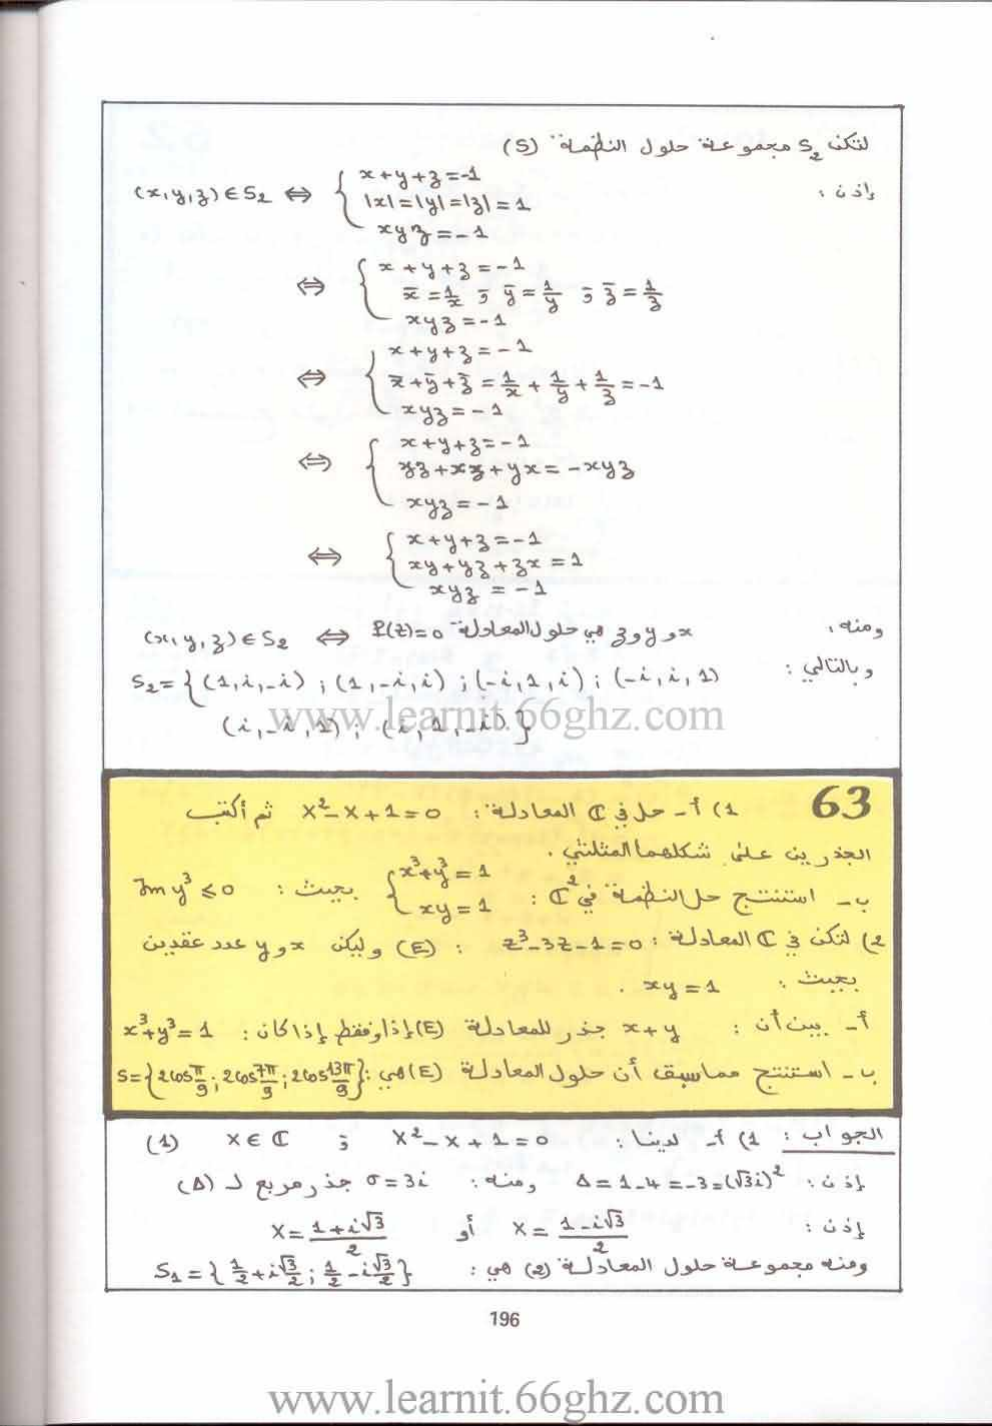 لتكن S₂ مجموعة حلول النظمة (S)
إذن : (x,y,z)∈S₂ ⇔ { x+y+z=-1
|x|=|y|=|z|=1
xyz=-1
⇔ { x+y+z=-1
x̄=1/x ; ȳ=1/y ; z̄=1/z
xyz=-1
⇔ { x+y+z=-1
x̄+ȳ+z̄=1/x+1/y+1/z=-1
xyz=-1
⇔ { x+y+z=-1
yz+xz+yx=-xyz
xyz=-1
⇔ { x+y+z=-1
xy+yz+zx=1
xyz=-1
ومنه، x و y و z هي حلول المعادلة P(z)=0 ⇔ (x,y,z)∈S₂
وبالتالي : S₂={(1,i,-i) ; (1,-i,i) ; (-i,1,i) ; (-i,i,1)
(i,-i,1) ; (i,1,-i)}
www.learnit.66ghz.com
63 1) أ- حل في ℂ المعادلة : X²-X+1=0 ثم أكتب
الجذرين على شكلهما المثلثي .
ب- استنتج حل النظمة في ℂ² : { x³+y³=1 بحيث : Im y³ ⩽ 0
xy=1
2) لتكن في ℂ المعادلة : z³-3z-1=0 : (E) وليكن x و y عدد عقدين
بحيث : xy=1 .
أ- بين أن : x+y جذر للمعادلة (E) إذا وفقط إذا كان : x³+y³=1
ب- استنتج مما سبق أن حلول المعادلة (E) هي : S={2cos π/9 ; 2cos 7π/9 ; 2cos 13π/9}
الجواب : 1) أ- لدينا : X²-X+1=0 ; X∈ℂ (1)
إذن : Δ=1-4=-3=(√3i)² ومنه : σ=3i جذر مربع لـ (Δ)
إذن : X=(1-i√3)/2 أو X=(1+i√3)/2
ومنه مجموعة حلول المعادلة (2) هي : S₁={1/2+i√3/2 ; 1/2-i√3/2}
196
www.learnit.66ghz.com